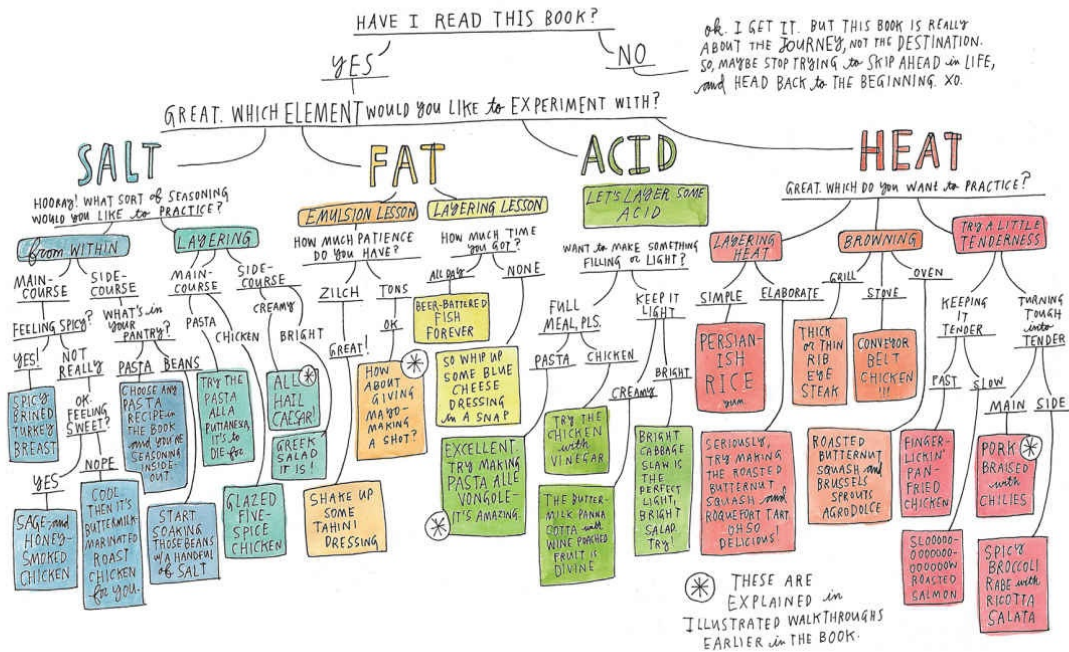 HAVE I READ THIS BOOK?
YES
NO
ok. I GET IT. BUT THIS BOOK IS REALLY
ABOUT THE JOURNEY, NOT THE DESTINATION.
SO, MAYBE STOP TRYING to SKIP AHEAD in LIFE,
and HEAD BACK to THE BEGINNING. XO.
GREAT. WHICH ELEMENT WOULD YOU LIKE to EXPERIMENT WITH?
SALT
HOORAY! WHAT SORT of SEASONING
WOULD YOU LIKE to PRACTICE?
from WITHIN
MAIN-
COURSE
FEELING SPICY?
YES!
SPICY
BRINED
TURKEY
BREAST
NOT
REALLY
OK.
FEELING
SWEET?
YES
SAGE-and
HONEY-
SMOKED
CHICKEN
NOPE
COOL.
THEN IT'S
BUTTERMILK-
MARINATED
ROAST
CHICKEN
for YOU.
SIDE-
COURSE
WHAT'S in
YOUR
PANTRY?
PASTA
CHOOSE ANY
PASTA
RECIPE in
THE BOOK
and YOU'RE
SEASONING
INSIDE-
OUT.
BEANS
START
SOAKING
THOSE BEANS
w/ A HANDFUL
of SALT
LAYERING
MAIN-
COURSE
PASTA
TRY THE
PASTA
ALLA
PUTTANESCA,
IT'S to
DIE for
CHICKEN
GLAZED
FIVE-
SPICE
CHICKEN
SIDE-
COURSE
CREAMY
ALL
HAIL
CAESAR!
BRIGHT
GREEK
SALAD
IT IS!
FAT
EMULSION LESSON
HOW MUCH PATIENCE
DO YOU HAVE?
ZILCH
GREAT!
SHAKE UP
SOME
TAHINI
DRESSING
TONS
OK
HOW
ABOUT
GIVING
MAYO-
MAKING
A SHOT?
LAYERING LESSON
HOW MUCH TIME
YOU GOT?
ALL DAY
BEER-BATTERED
FISH
FOREVER
NONE
SO WHIP UP
SOME BLUE
CHEESE
DRESSING
IN A SNAP
ACID
LET'S LAYER SOME
ACID
WANT to MAKE SOMETHING
FILLING or LIGHT?
FULL
MEAL, PLS.
PASTA
EXCELLENT.
TRY MAKING
PASTA ALLE
VONGOLE-
IT'S AMAZING.
CHICKEN
TRY THE
CHICKEN with
VINEGAR
KEEP IT
LIGHT
CREAMY
THE BUTTER-
MILK PANNA
COTTA with
WINE POACHED
FRUIT IS
DIVINE
BRIGHT
BRIGHT
CABBAGE
SLAW IS
THE
PERFECT
LIGHT,
BRIGHT
SALAD.
TRY!
HEAT
GREAT. WHICH DO YOU WANT to PRACTICE?
LAYERING
HEAT
SIMPLE
PERSIAN-
ISH
RICE
yum
ELABORATE
SERIOUSLY,
TRY MAKING
THE ROASTED
BUTTERNUT
SQUASH and
ROQUEFORT TART.
OH SO
DELICIOUS!
BROWNING
GRILL
THICK
or THIN
RIB
EYE
STEAK
STOVE
CONVEYOR
BELT
CHICKEN
!!!
OVEN
ROASTED
BUTTERNUT
SQUASH and
BRUSSELS
SPROUTS
AGRODOLCE
TRY A LITTLE
TENDERNESS
KEEPING
IT
TENDER
FAST
FINGER-
LICKIN'
PAN-
FRIED
CHICKEN
SLOW
SLOOOOO-
OOOOOOO-
OOOOOOW
ROASTED
SALMON
TURNING
TOUGH into
TENDER
MAIN
PORK
BRAISED
with
CHILIES
SIDE
SPICY
BROCCOLI
RABE with
RICOTTA
SALATA
THESE ARE
EXPLAINED in
ILLUSTRATED WALKTHROUGHS
EARLIER in THE BOOK.